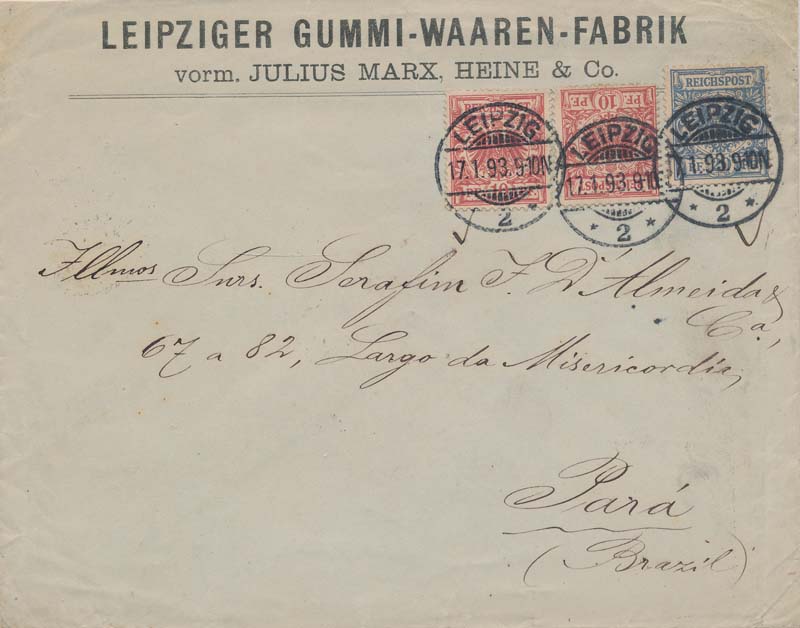 LEIPZIGER GUMMI-WAAREN-FABRIK
vorm. JULIUS MARX, HEINE & Co.
REICHSPOST
10 PF
LEIPZIG
17.1.93.9-10N.
* 2 *
LEIPZIG
17.1.93.9-10N.
* 2 *
LEIPZIG
17.1.93.9-10N.
* 2 *
Illmos Snrs. Serafim F. D'Almeida &
Ca,
67 a 82, Largo da Misericordia,
Pará
(Brazil)